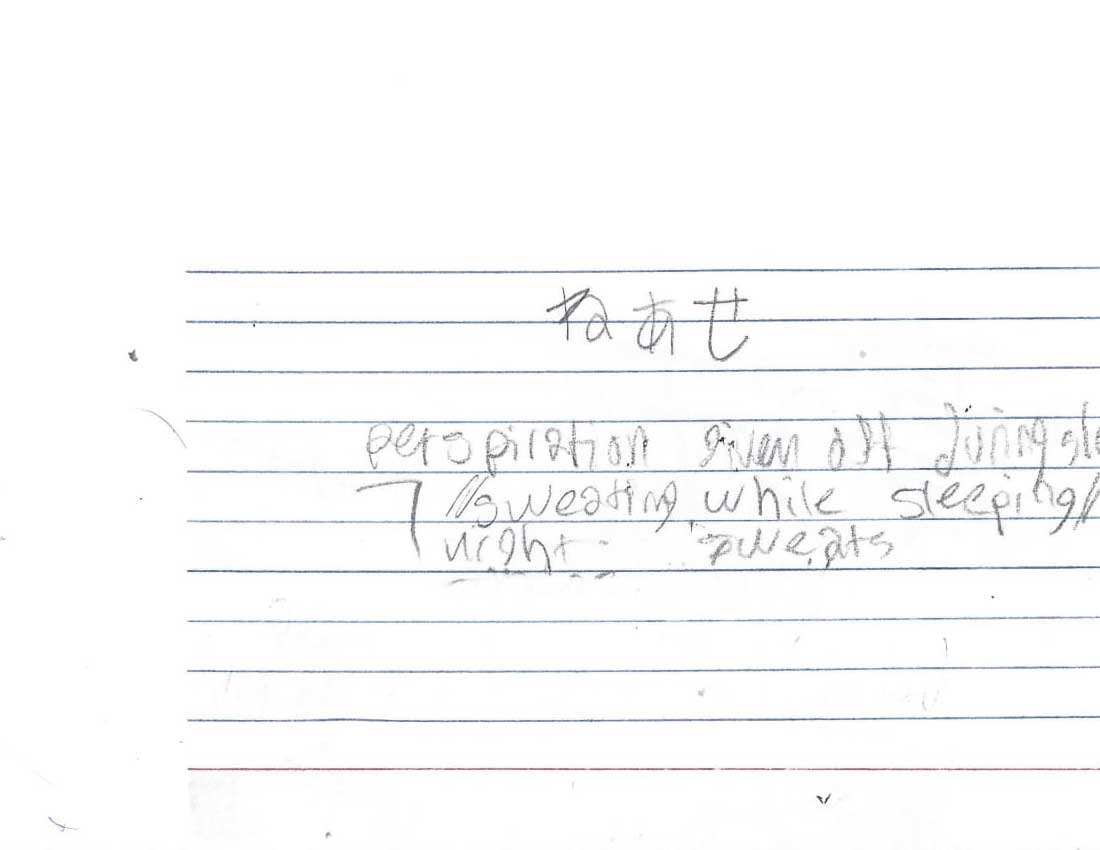 ねあせ
perspiration given off during sle
//sweating while sleeping//
night sweats